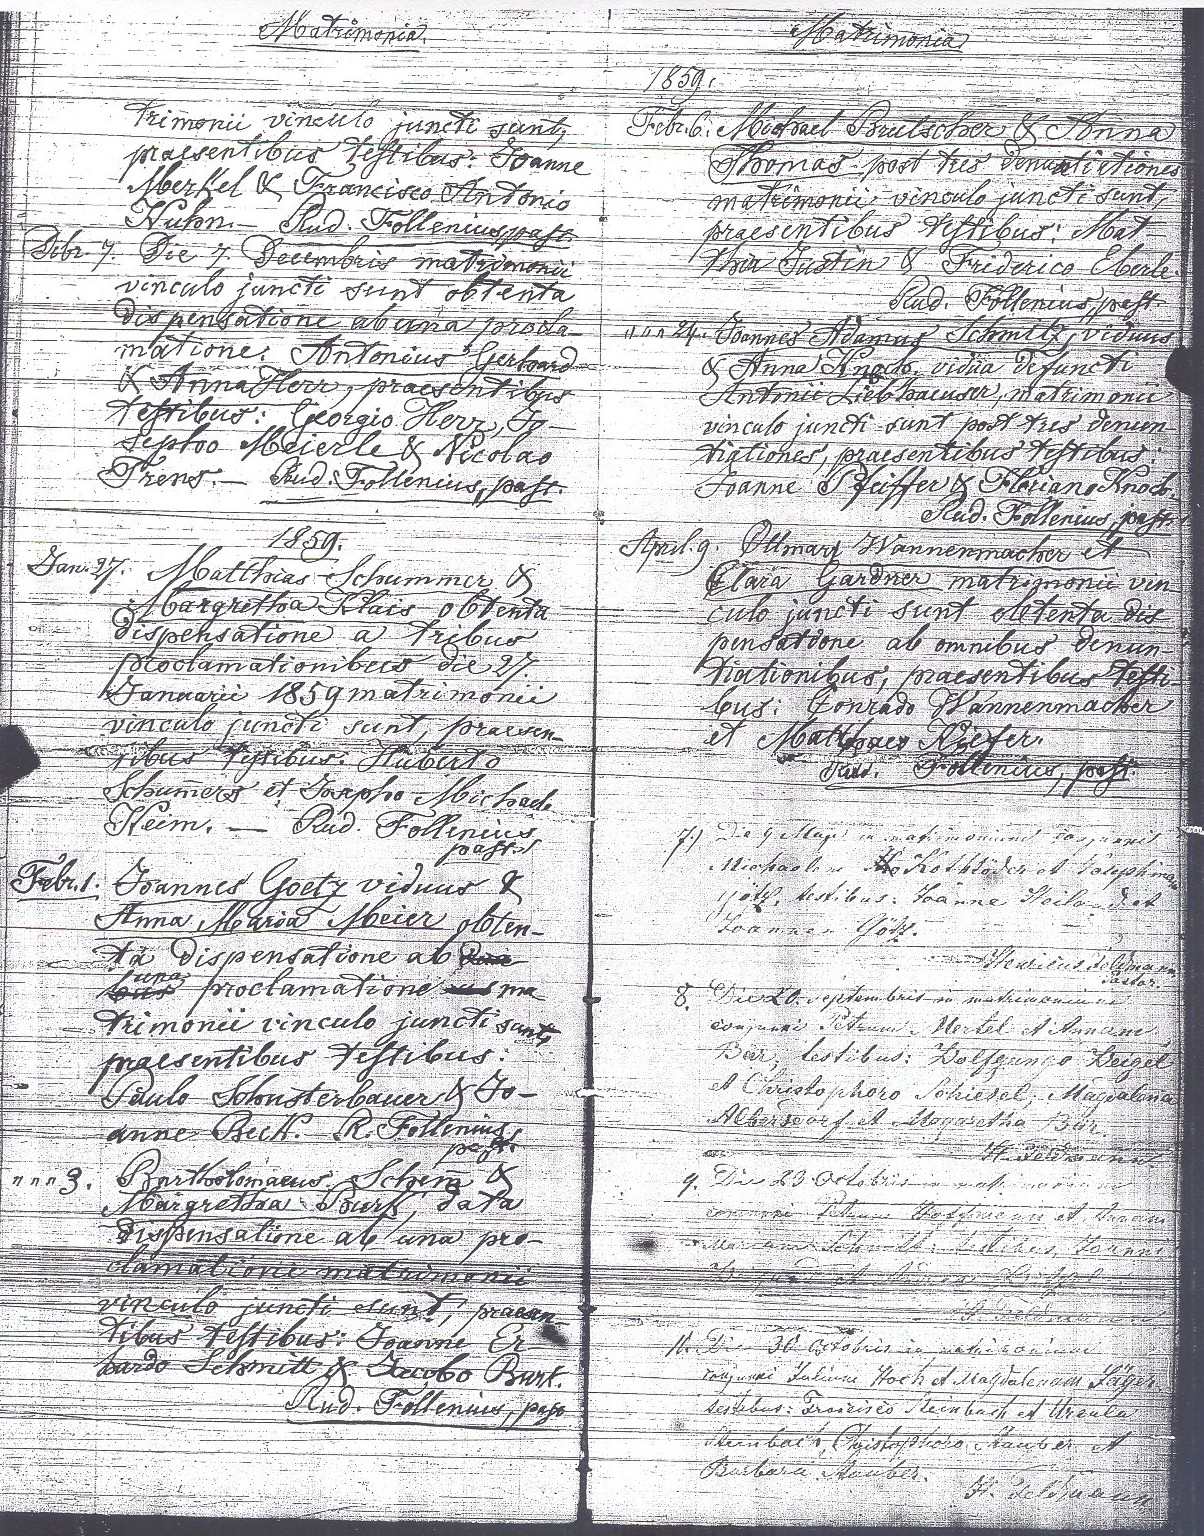 Matrimonia
trimonii vinculo juncti sunt,
praesentibus testibus: Joanne
Merkel & Francisco Antonio
Huhn. — Rud. Follenius, past.
Dcbr. 7. Die 7. Decembris matrimonii
vinculo juncti sunt obtenta
dispensatione ab una procla-
matione: Antonius Gerhard
& Anna Herr, praesentibus
testibus: Georgio Herr, Jo-
sepho Meierle & Nicolao
Trens. — Rud. Follenius, past.
1859.
Jan. 27. Matthias Schummer &
Margretha Klais obtenta
dispensatione a tribus
proclamationibus die 27.
Januarii 1859 matrimonii
vinculo juncti sunt, praesen-
tibus testibus: Huberto
Schum̄ers et Josepho Michaele
Keim. — Rud. Follenius
past.
Febr. 1. Joannes Goetz viduus &
Anna Maria Meier obten-
ta dispensatione ab
una proclamatione ma-
trimonii vinculo juncti sunt,
praesentibus testibus:
Paulo Schusterbauer & Jo-
anne Beck. R. Follenius,
past.
" " " 3. Bartholomaeus Schem̄ &
Margretha Burk, data
dispensatione ab una pro-
clamatione matrimonii
vinculo juncti sunt, praesen-
tibus testibus: Joanne Er-
hardo Schmitt & Jacobo Burk.
Rud. Follenius, past
Matrimonia
1859.
Febr. 6. Michael Brutscher & Anna
Thomas post tres denuntiationes
matrimonii vinculo juncti sunt,
praesentibus testibus: Mat-
thia Justin & Friderico Eberle.
Rud. Follenius, past.
" " " 24. Joannes Adamus Schmitz, viduus
& Anna Knoch, vidua defuncti
Antonii Liebhaeuser, matrimonii
vinculo juncti sunt post tres denun-
tiationes, praesentibus testibus:
Joanne Pfeiffer & Floriano Knoch.
Rud. Follenius, past.
April. 9. Ottmary Wannenmacher et
Clara Gardner matrimonii vin-
culo juncti sunt obtenta dis-
pensatione ab omnibus denun-
tiationibus, praesentibus testi-
bus: Conrado Wannenmacher
et Matthaeo Kiefer.
Rud. Follenius, past.
7.) Die 9 Maji in matrimonium conjunxi
Michaelem et Josephinam
Götz, testibus: Joanne et
Joanne Götz.
Henricus Feldmann
Pastor.
8. Die 20. Septembris in matrimonium
conjunxi Petrum Mertel et Annam
Bär, testibus: Wolfgango Weigel
et Christophoro Schiesel, Magdalena
Albersdorf et Margaretha Bär.
H. Feldmann
9. Die 23 Octobris in matrimonium
conjunxi Petrum Hoffmann et Annam
Mariam Schmitt: testibus, Joanne
et Andrea
H. Feldmann
10. Die 30 Octobris in matrimonium
conjunxi Julium Hoch et Magdalenam Jäger
testibus: Francisco Steinbach et Ursula
Steinbach, Christophoro Stauber et
Barbara Stauber.
H. Feldmann